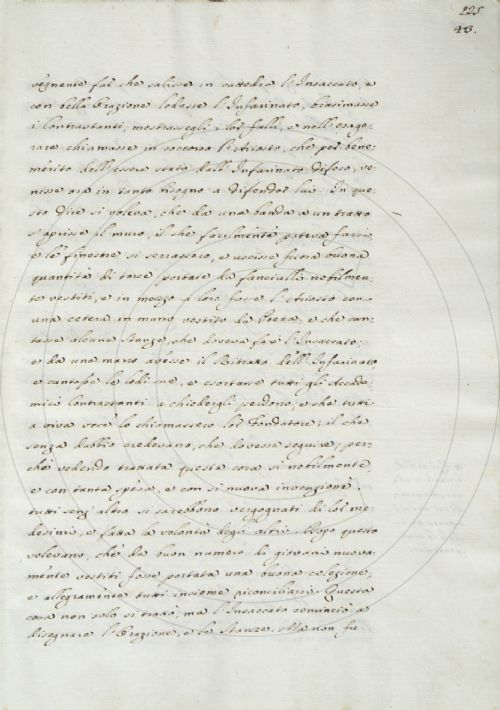 225
43.
vegnente fa che salisse in cattedra l'Insaccato, e
con bella Orazione lodasse l'Infarinato, biasimasse
i Contrastanti, mostrasse gli i lor falli, e nell'esage-
rare chiamasse in soccorso l'Ariosto, che per bene-
merito dell'essere stato dall'Infarinato difeso, ve-
nisse ora in tanto bisogno a difender lui. In que-
sto dire si voleva, che da una banda a un tratto
s'aprisse il muro, il che facilmente poteva farsi,
e le finestre si serrassero, e uscisse fuora buona
quantità di torce portate da fanciulli nobilmen-
te vestiti, e in mezzo a loro fosse l'Ariosto con
una cetera in mano vestito da Poeta, e che can-
tasse alcune Stanze, che doveva fare l'Insaccato:
e da una mano avesse il Ritratto dell'Infarinato,
e cantasse le lodi sue, e esortasse tutti gli Accade-
mici Contrastanti a chiedergli perdono, e che tutti
a viva voce lo chiamassero lor Fondatore; il che
senza dubbio credevano, che dovesse seguire, per-
chè vedendo trattata questa cosa sì nobilmente,
e con tanta spesa, e con sì nuova invenzione,
tutti senz'altro si sarebbono vergognati di loro me-
desimi, e fatta la volontà degli altri. Dopo questo
volevano, che da buon numero di giovani nuova-
mente vestiti fosse portata una buona colezione,
e allegramente tutti insieme riconciliarsi. Questa
cosa non solo si trattò, ma l'Insaccato cominciò a
disegnare l'Orazione, e le Stanze. Ma non fu-